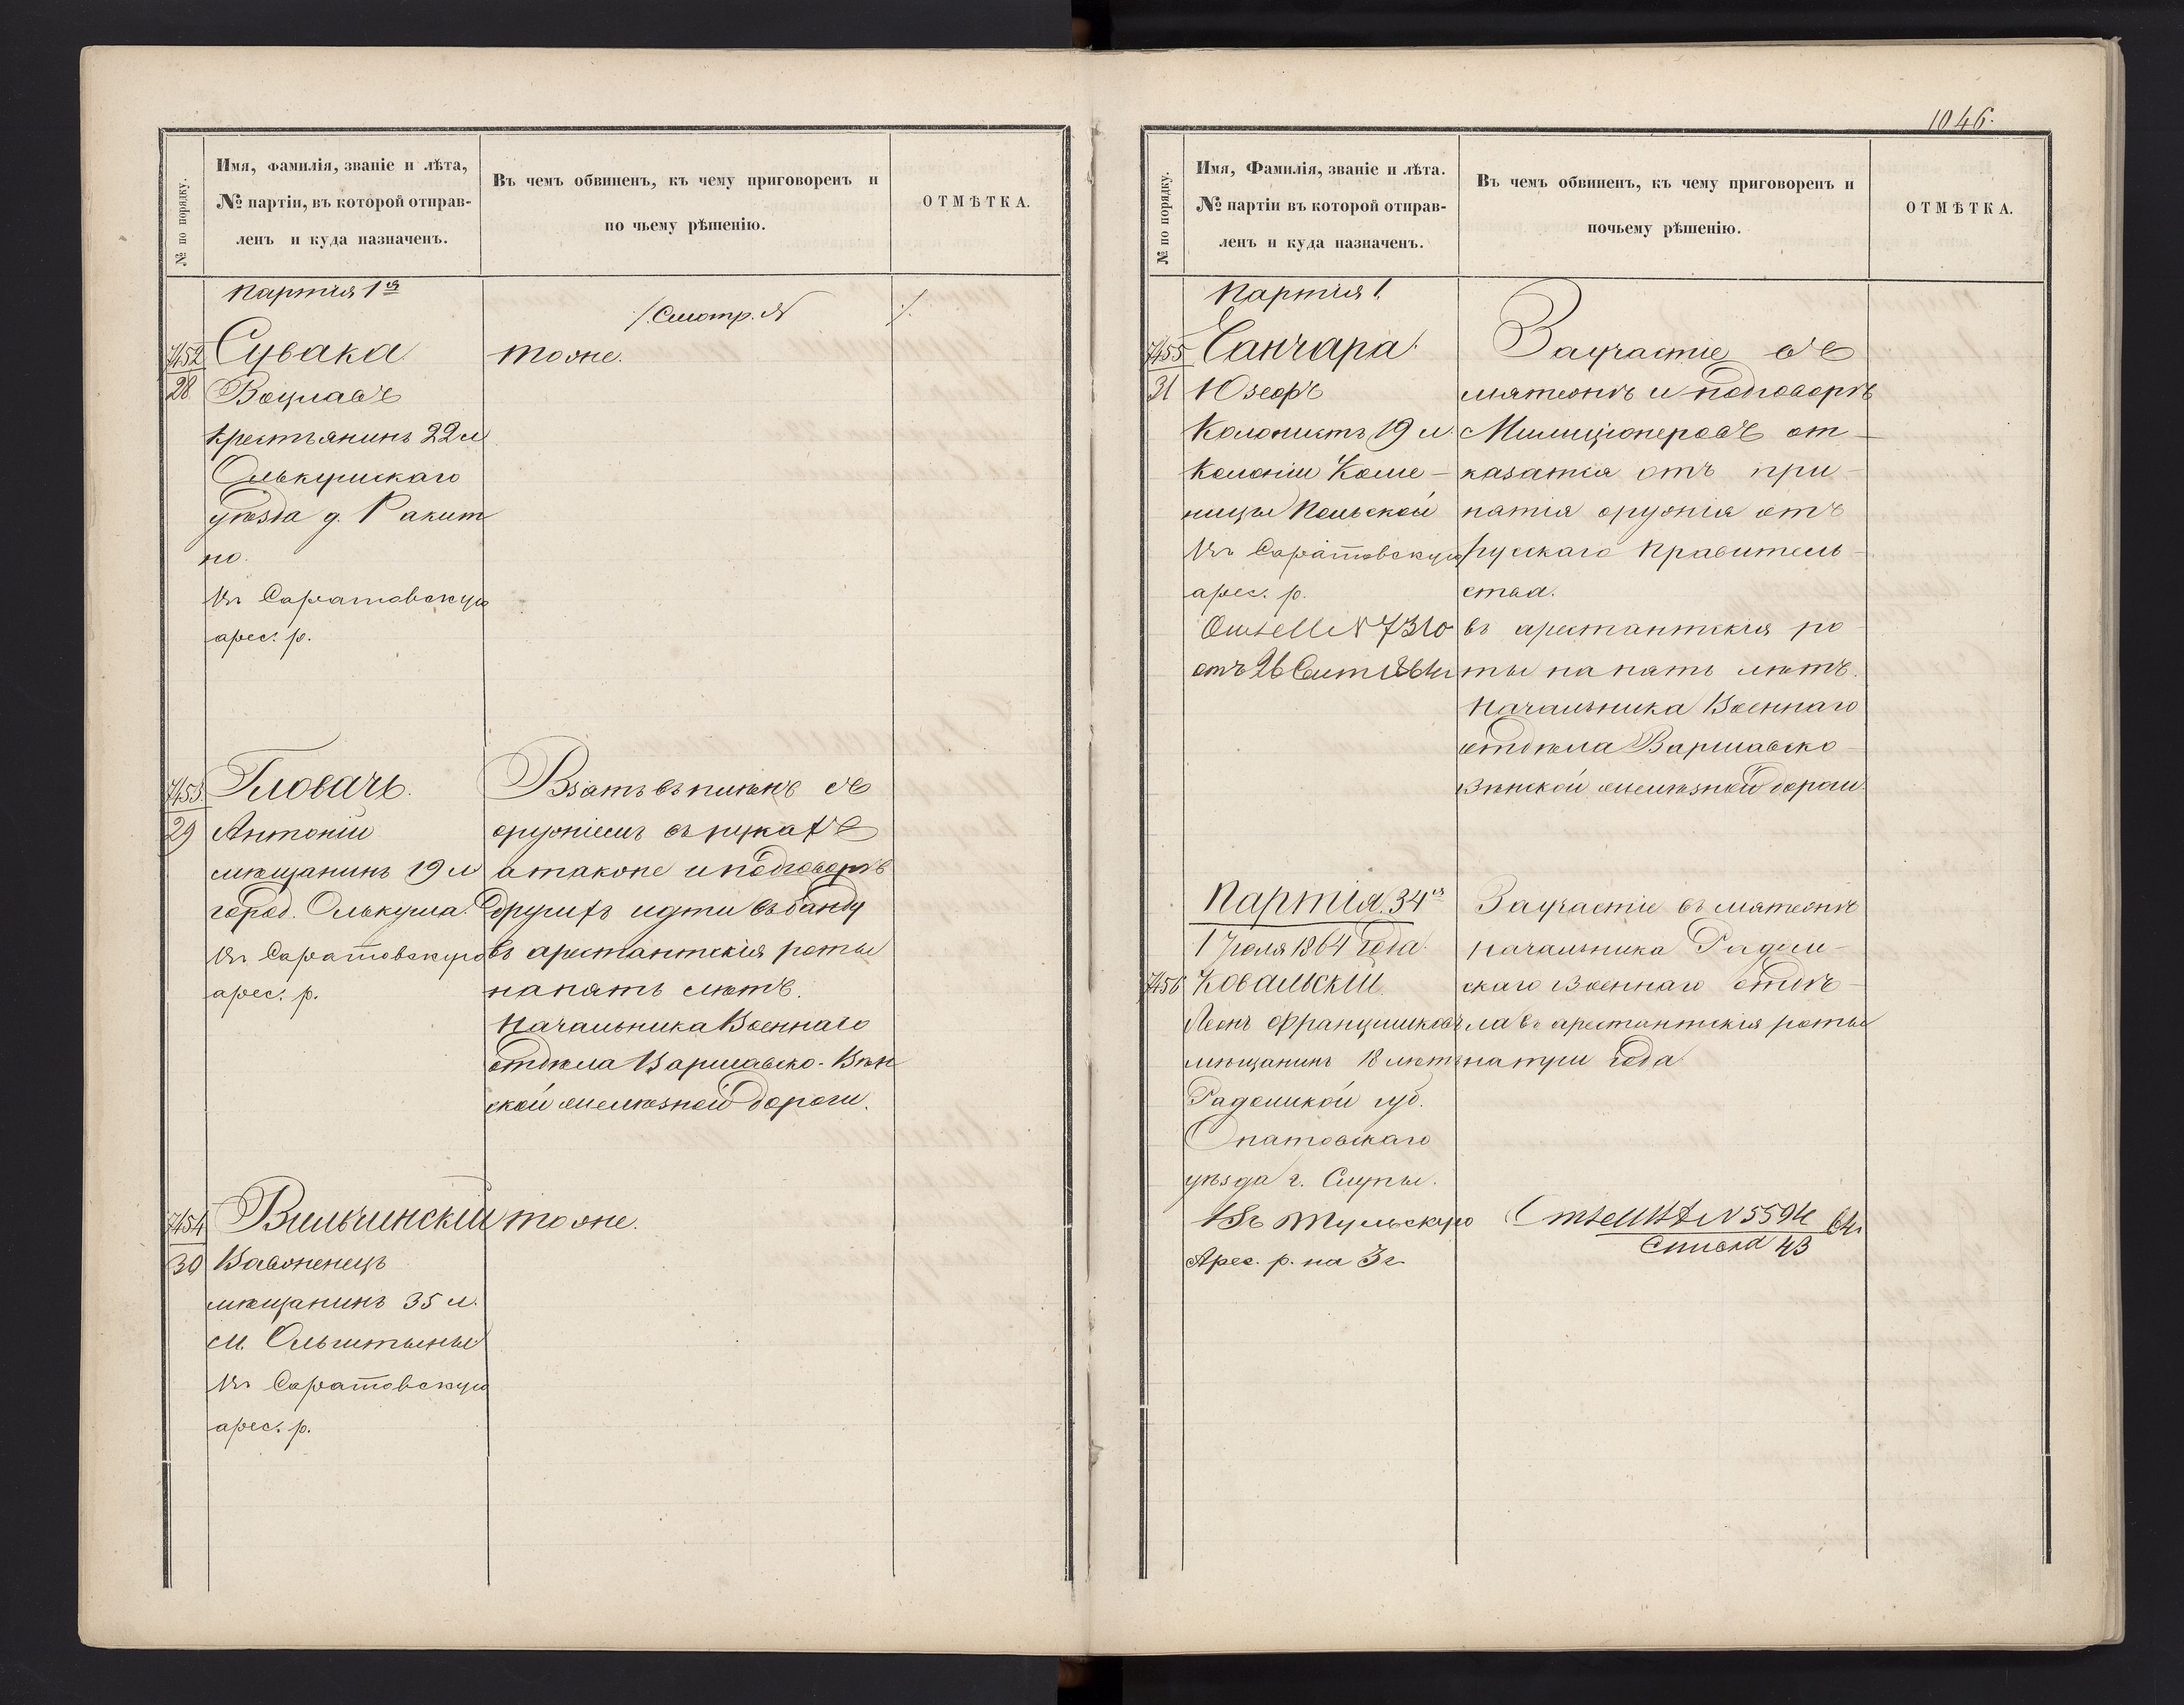 № по порядку.
Имя, фамилія, званіе и лѣта,
№ партіи, въ которой отправ-
ленъ и куда назначенъ.
Въ чемъ обвиненъ, къ чему приговоренъ и
по чьему рѣшенію.
ОТМѢТКА.
Партія 1я
/. Смотр. №
/.
7452
28
Сувака
Вацлавъ
крестьянинъ 22 л
Олькушскаго
уѣзда д. Ракит
но.
Въ Саратовскую
арес. р.
тоже.
7453
29
Гловачъ.
Антоній
мѣщанинъ 19 л
город. Олькуша.
Въ Саратовскую
арес. р.
Взятъ въ плѣнъ съ
оружіемъ въ рукахъ
а также и подговоръ
другихъ идти въ банду
въ арестантскія роты
на пять лѣтъ.
Начальника Военнаго
отдѣла Варшавско-Вѣн
ской желѣзной дороги.
7454
30
Вильчинскій
Вавженецъ
мѣщанинъ 35 л.
м. Ольштыны
Въ Саратовскую
арес. р.
тоже.
1046.
№ по порядку.
Имя, Фамилія, званіе и лѣта.
№ партіи въ которой отправ-
ленъ и куда назначенъ.
Въ чемъ обвиненъ, къ чему приговоренъ и
почьему рѣшенію.
ОТМѢТКА.
Партія 1.
7455
31
Санчара.
Юзефъ
Колонистъ 19 л.
Колоніи Каме-
ницы Польской
Въ Саратовскую
арес. р.
№ 7310
отъ 26 Сент 1864 г
За участіе въ
мятежѣ и подговоръ
Милиціонеровъ от-
казатся отъ при-
натія оружія отъ
рускаго Правитель-
ства.
въ арестантскія ро
ты на пять лѣтъ.
Начальника Военнаго
отдѣла Варшавско-
Вѣнской желѣзной дороги.
Партія. 34я
1 Іюля 1864 года.
7456
Ковальскій
Леонъ Францишковъ
мѣщанинъ 18 лѣтъ
Радомской губ.
Опатовскаго
уѣзда г. Слупы.
Въ Тульскую
Арес. р. на 3 г.
За участіе въ мятежѣ
Начальника Радом-
скаго Военнаго отдѣ-
ла въ арестантскія роты
на три года
№ 5594 64 г.
Списка 43